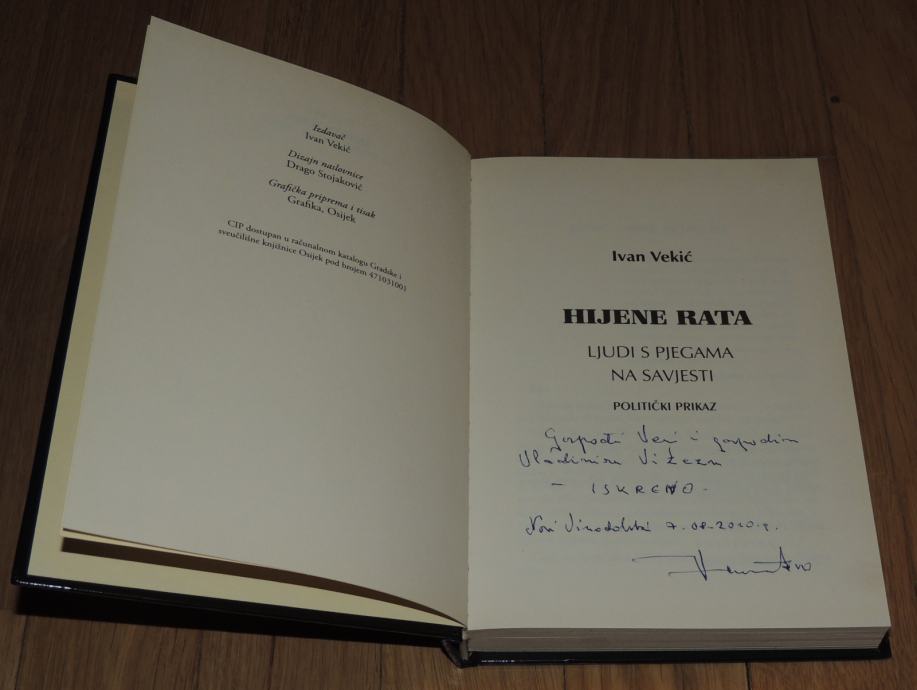 Izdavač
Ivan Vekić
Dizajn naslovnice
Drago Stojaković
Grafička priprema i tisak
Grafika, Osijek
CIP dostupan u računalnom katalogu Gradske i
sveučilišne knjižnice Osijek pod brojem 471031001
Ivan Vekić
HIJENE RATA
LJUDI S PJEGAMA
NA SAVJESTI
POLITIČKI PRIKAZ
Gospođi Veri i gospodinu
Vladimiru
- ISKRENO -
Novi Vinodolski 7.08.2010.g.